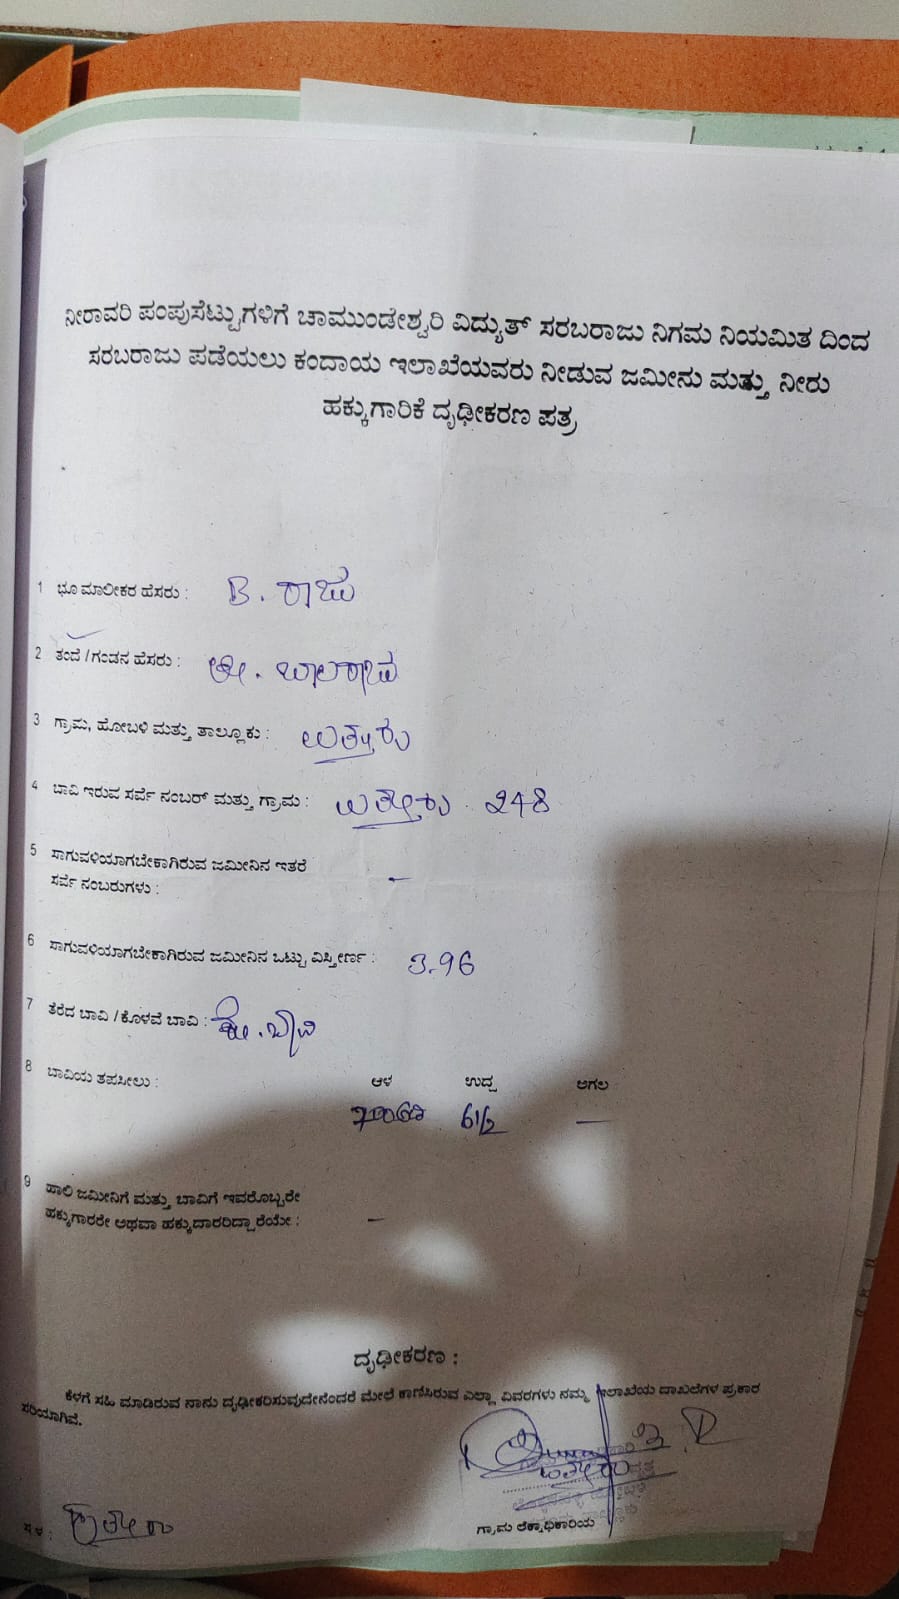 ನೀರಾವರಿ ಪಂಪುಸೆಟ್ಟುಗಳಿಗೆ ಚಾಮುಂಡೇಶ್ವರಿ ವಿದ್ಯುತ್ ಸರಬರಾಜು ನಿಗಮ ನಿಯಮಿತ ದಿಂದ
ಸರಬರಾಜು ಪಡೆಯಲು ಕಂದಾಯ ಇಲಾಖೆಯವರು ನೀಡುವ ಜಮೀನು ಮತ್ತು ನೀರು
ಹಕ್ಕುಗಾರಿಕೆ ದೃಢೀಕರಣ ಪತ್ರ
1 ಭೂ ಮಾಲೀಕರ ಹೆಸರು : B. ರಾಜು
2 ತಂದೆ / ಗಂಡನ ಹೆಸರು :
3 ಗ್ರಾಮ, ಹೋಬಳಿ ಮತ್ತು ತಾಲ್ಲೂಕು :
4 ಬಾವಿ ಇರುವ ಸರ್ವೆ ನಂಬರ್ ಮತ್ತು ಗ್ರಾಮ : 248
5 ಸಾಗುವಳಿಯಾಗಬೇಕಾಗಿರುವ ಜಮೀನಿನ ಇತರೆ
ಸರ್ವೆ ನಂಬರುಗಳು : –
6 ಸಾಗುವಳಿಯಾಗಬೇಕಾಗಿರುವ ಜಮೀನಿನ ಒಟ್ಟು ವಿಸ್ತೀರ್ಣ : 3.96
7 ತೆರೆದ ಬಾವಿ / ಕೊಳವೆ ಬಾವಿ : ಕೊ. ಬಾವಿ
8 ಬಾವಿಯ ತಪಸೀಲು : ಆಳ ಉದ್ದ ಅಗಲ
6 1/2 —
9 ಹಾಲಿ ಜಮೀನಿಗೆ ಮತ್ತು ಬಾವಿಗೆ ಇವರೊಬ್ಬರೇ
ಹಕ್ಕುಗಾರರೇ ಅಥವಾ ಹಕ್ಕುದಾರರಿದ್ದಾರೆಯೇ : –
ದೃಢೀಕರಣ :
ಕೆಳಗೆ ಸಹಿ ಮಾಡಿರುವ ನಾನು ದೃಢೀಕರಿಸುವುದೇನೆಂದರೆ ಮೇಲೆ ಕಾಣಿಸಿರುವ ಎಲ್ಲಾ ವಿವರಗಳು ನಮ್ಮ ಇಲಾಖೆಯ ದಾಖಲೆಗಳ ಪ್ರಕಾರ
ಸರಿಯಾಗಿವೆ.
ಸ್ಥಳ :
ಗ್ರಾಮ ಲೆಕ್ಕಾಧಿಕಾರಿಯ